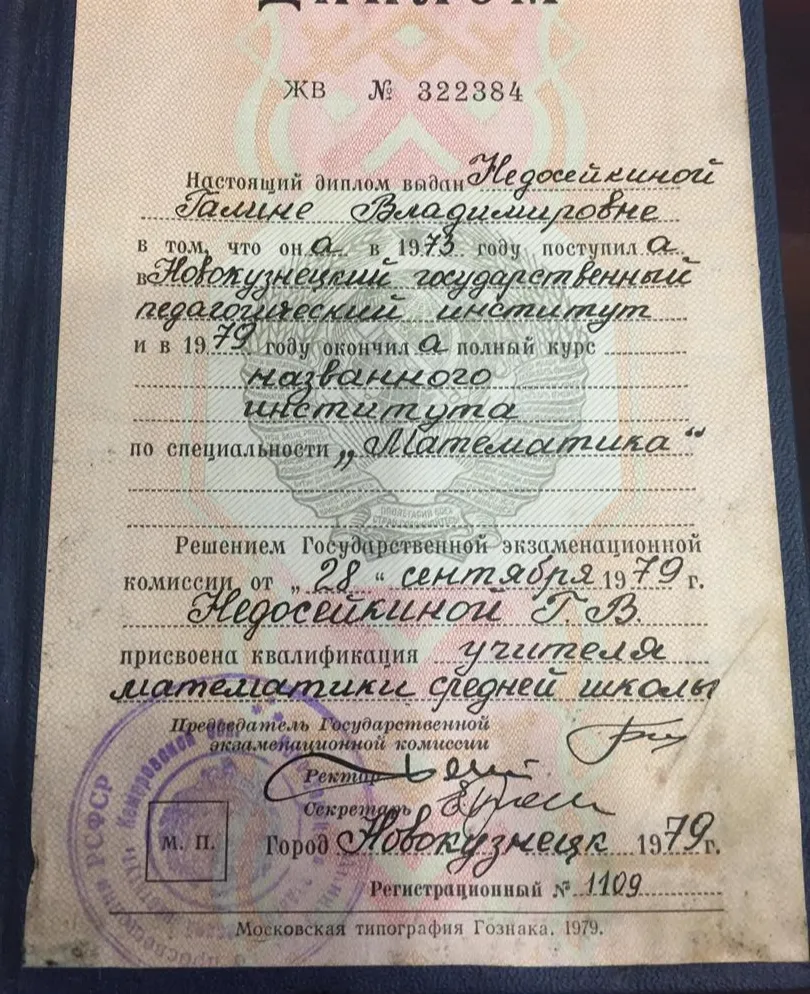 ДИПЛОМ
ЖВ № 322384
Настоящий диплом выдан Недосейкиной
Галине Владимировне
в том, что он а в 1973 году поступил а
в Новокузнецкий государственный
педагогический институт
и в 1979 году окончил а полный курс
названного
института
по специальности „Математика“
Решением Государственной экзаменационной
комиссии от „28“ сентября 1979 г.
Недосейкиной Г. В.
присвоена квалификация учителя
математики средней школы
Председатель Государственной
экзаменационной комиссии
Ректор
Секретарь
М. П.
Город Новокузнецк 1979 г.
Регистрационный № 1109
Московская типография Гознака. 1979.
РСФСР